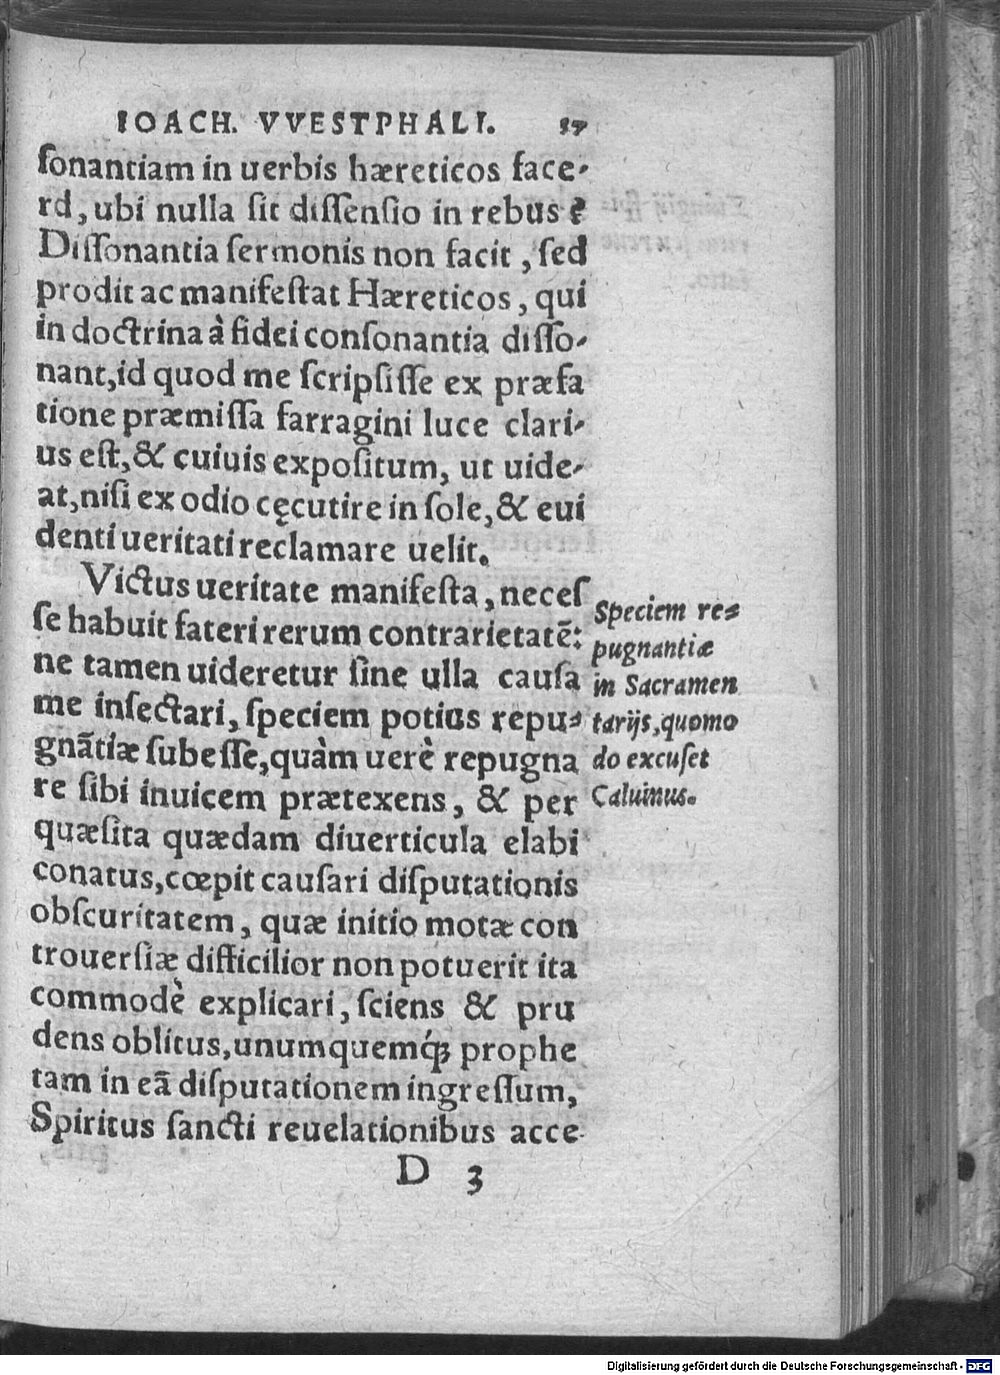 IOACH. VVESTPHALI.
ſonantiam in uerbis hæreticos face-
rd, ubi nulla ſit diſſenſio in rebus?
Diſſonantia ſermonis non facit, ſed
prodit ac manifeſtat Hæreticos, qui
in doctrina à fidei conſonantia diſſo-
nant, id quod me ſcripſiſſe ex præfa
tione præmiſſa farragini luce clari-
us eſt, & cuiuis expoſitum, ut uide-
at, niſi ex odio cęcutire in ſole, & eui
denti ueritati reclamare uelit.
Victus ueritate manifeſta, neceſ
ſe habuit fateri rerum contrarietatē:
ne tamen uideretur ſine ulla cauſa
me inſectari, ſpeciem potius repu-
gnātiæ ſubeſſe, quàm uerè repugna
re ſibi inuicem prætexens, & per
quæſita quædam diuerticula elabi
conatus, cœpit cauſari diſputationis
obſcuritatem, quæ initio motæ con
trouerſiæ difficilior non potuerit ita
commodè explicari, ſciens & pru
dens oblitus, unumquemq́ꝫ prophe
tam in eā diſputationem ingreſſum,
Spiritus ſancti reuelationibus acce
D 3
Speciem re-
pugnantiæ
in Sacramen
tarijs, quomo
do excuſet
Caluinus.
Digitalisierung gefördert durch die Deutsche Forschungsgemeinschaft - DFG